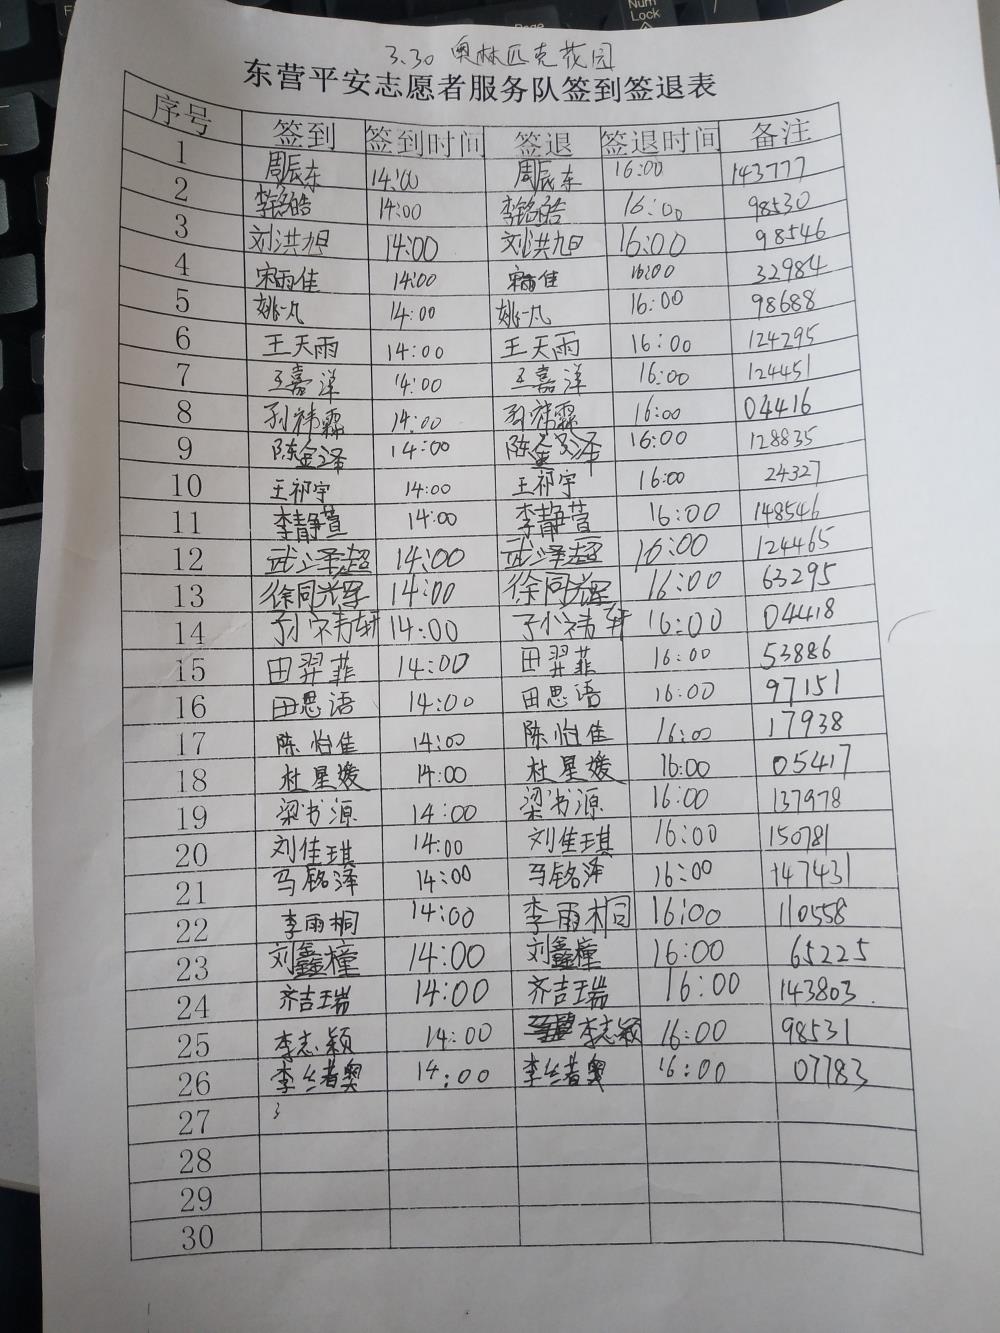 3.30 奥林匹克花园
东营平安志愿者服务队签到签退表
序号 签到 签到时间 签退 签退时间 备注
1 周辰东 14:00 周辰东 16:00 143777
2 李铭皓 14:00 李铭皓 16:00 98530
3 刘洪旭 14:00 刘洪旭 16:00 98546
4 宋雨佳 14:00 宋雨佳 16:00 32984
5 姚一凡 14:00 姚一凡 16:00 98688
6 王天雨 14:00 王天雨 16:00 124295
7 王嘉洋 14:00 王嘉洋 16:00 124451
8 孙祎霖 14:00 孙祎霖 16:00 04416
9 陈金泽 14:00 陈金泽 16:00 128835
10 王祁宇 14:00 王祁宇 16:00 24327
11 李静萱 14:00 李静萱 16:00 148546
12 武泽超 14:00 武泽超 16:00 124465
13 徐同辉 14:00 徐同辉 16:00 63295
14 14:00 16:00 04418
15 田羿菲 14:00 田羿菲 16:00 53886
16 田思语 14:00 田思语 16:00 97151
17 陈怡佳 14:00 陈怡佳 16:00 17938
18 杜星媛 14:00 杜星媛 16:00 05417
19 梁书源 14:00 梁书源 16:00 137978
20 刘佳琪 14:00 刘佳琪 16:00 150781
21 马铭泽 14:00 马铭泽 16:00 147431
22 李雨桐 14:00 李雨桐 16:00 110558
23 刘鑫橦 14:00 刘鑫橦 16:00 65225
24 齐吉瑞 14:00 齐吉瑞 16:00 143803
25 李志颖 14:00 李志颖 16:00 98531
26 李绪奥 14:00 李绪奥 16:00 07783
27
28
29
30
Num
Lock